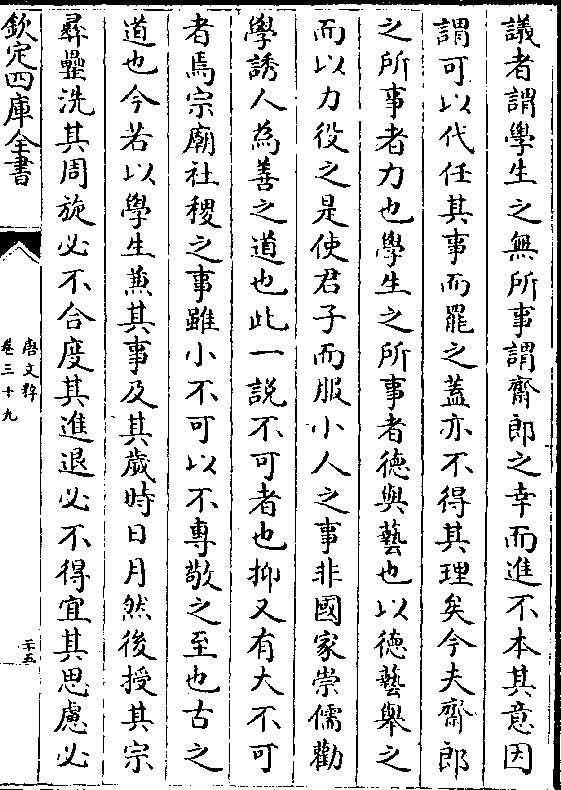 議者謂學生之無所事謂齋郎之幸而進不本其意因
謂可以代任其事而罷之蓋亦不得其理矣今夫齋郎
之所事者力也學生之所事者德與藝也以德藝舉之
而以力役之是使君子而服小人之事非國家崇儒勸
學誘人為善之道也此一說不可者也抑又有大不可
者焉宗廟社稷之事雖小不可以不專敬之至也古之
道也今若以學生兼其事及其歲時日月然後授其宗
彛罍洗其周旋必不合度其進退必不得宜其思慮必
欽定四庫全書
唐文粹
卷三十九
二十五